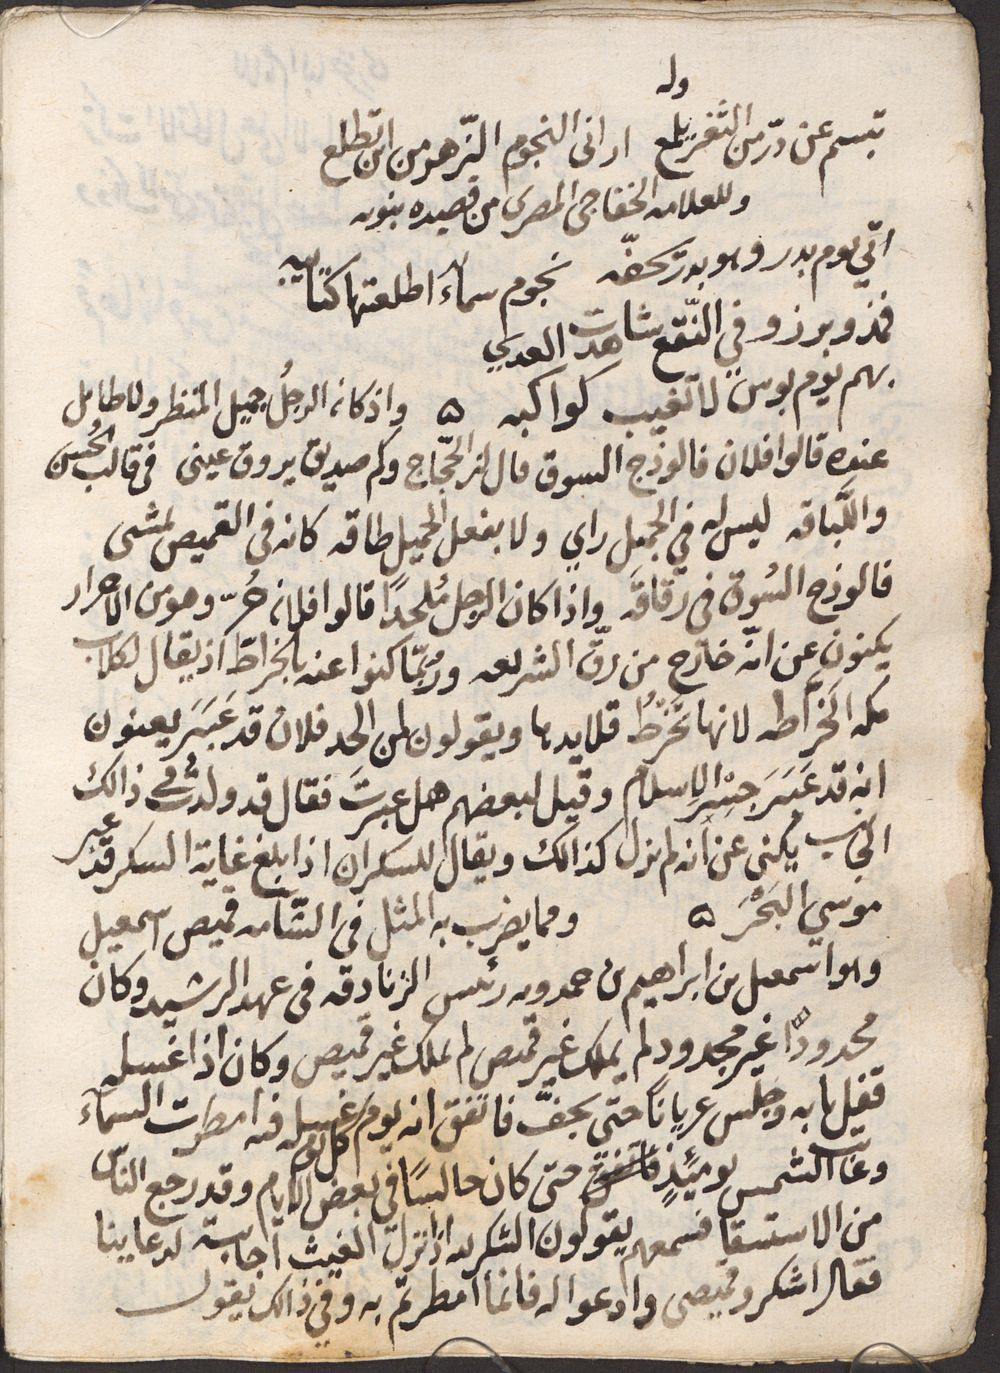 وله
تبسم عن درّ من الثغر يلمع ارانى النجوم الزّهر من اين تطلع
وللعلامه الخفاجى المصرى من قصيده بنويه
اتي يوم بدر وهو بدر تحفّه نجوم سماء اطلعتها كتايبه
فمذ وبرزو في النّقع شاهدت العدى
بهم يوم بوس لا تغيب كواكبه ٥ واذ كان الرجلُ جميل المنظر ولا طايل
عنده قالوا فلان فالوذج السوق قال ابن الحجّاج وكم صديق يروق عينى فى قالب الحُسن
واللّباقه ليس له في الجميل راي ولا بفعل الجميل طاقه كانه فى القميص لمشى
فالوذج السُوق فى رقاقه واذا كان الرجل مُلحدًا قالوا فلان حُرّ وهو من الاحرار
يكنون عن انّه خارج من رقّ الشريعه ورُبّما كنوا عنه بالخراط اذ يقال لكلاب
مكه الخَرّاطه لانها تَخرُطُ قلايدها ويقولون لمن الحد فلان قد عَبَرَ يعنون
انه قد عَبَرَ جِسْرَ الاسلام وقيل لبعضهم هل عبرتَ فقال قد ولدتُ فى ذالك
الجانب يكنى عن انه لم يزل كذالك ويقال للسكران اذا بلغ غاية السكر قد عبر
موسي البَحْرَ ٥ ومما يضرب به المثل فى الشّامه قميص اسمعيل
وهو اسمعيل بن ابراهيم بن حمدويه رئس الزنادقه فى عهد الرشيد وكان
محدودًا غير مجدود لم يملك غير قميص لم يملك غير قميص وكان اذا غسله
قفل بابه وجلس عريانًا حتى يجفّ فاتفق انه يوم غسله كل يوم فيه امطرت السماء
وغابت الشمس يومئذٍ حتى كان جالسًا في بعض الايام وقد رجع الناس
من الاستسقا فسمعهم يقولون الشكر لله اذ نزل الغيث اجابة لدعاينا
فقال اشكرو قميصى وادعوا له فانما امطرتم به وفي ذالك يقول